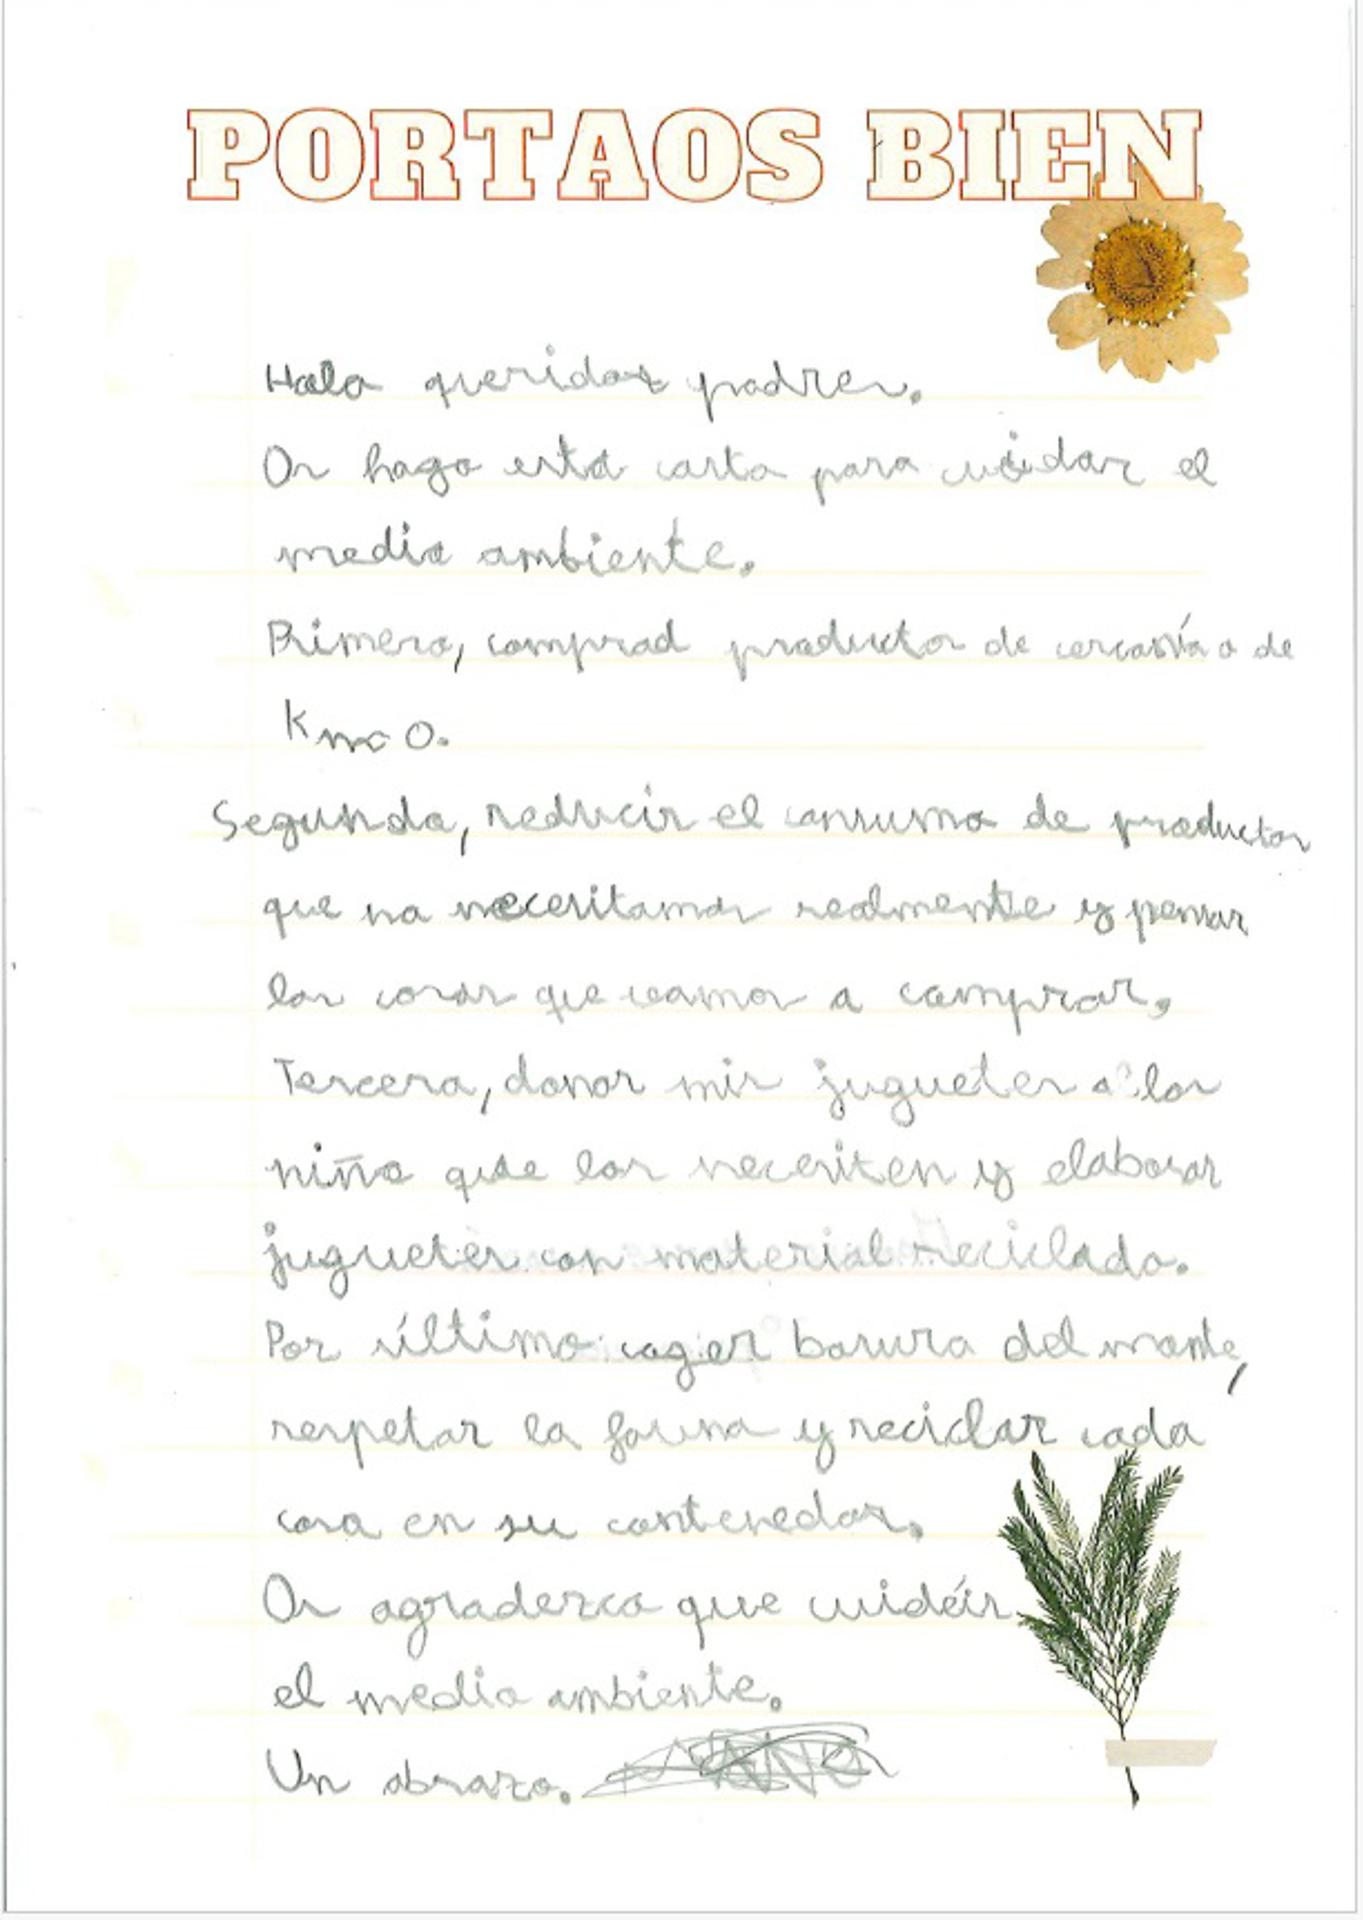 PORTAOS BIEN
Hola queridos padres.
Os hago esta carta para cuidar el
medio ambiente.
Primero, comprad productos de cercanía o de
Kmo 0.
Segundo, reducir el consumo de productos
que no necesitamos realmente y pensar
las cosas que veamos a comprar.
Tercero, donar mis juguetes a los
niño que los necesiten y elaborar
juguetes con material reciclado.
Por último coger basura del monte,
respetar la fauna y reciclar cada
cosa en su contenedor.
Os agradezco que cuidéis
el medio ambiente.
Un abrazo.